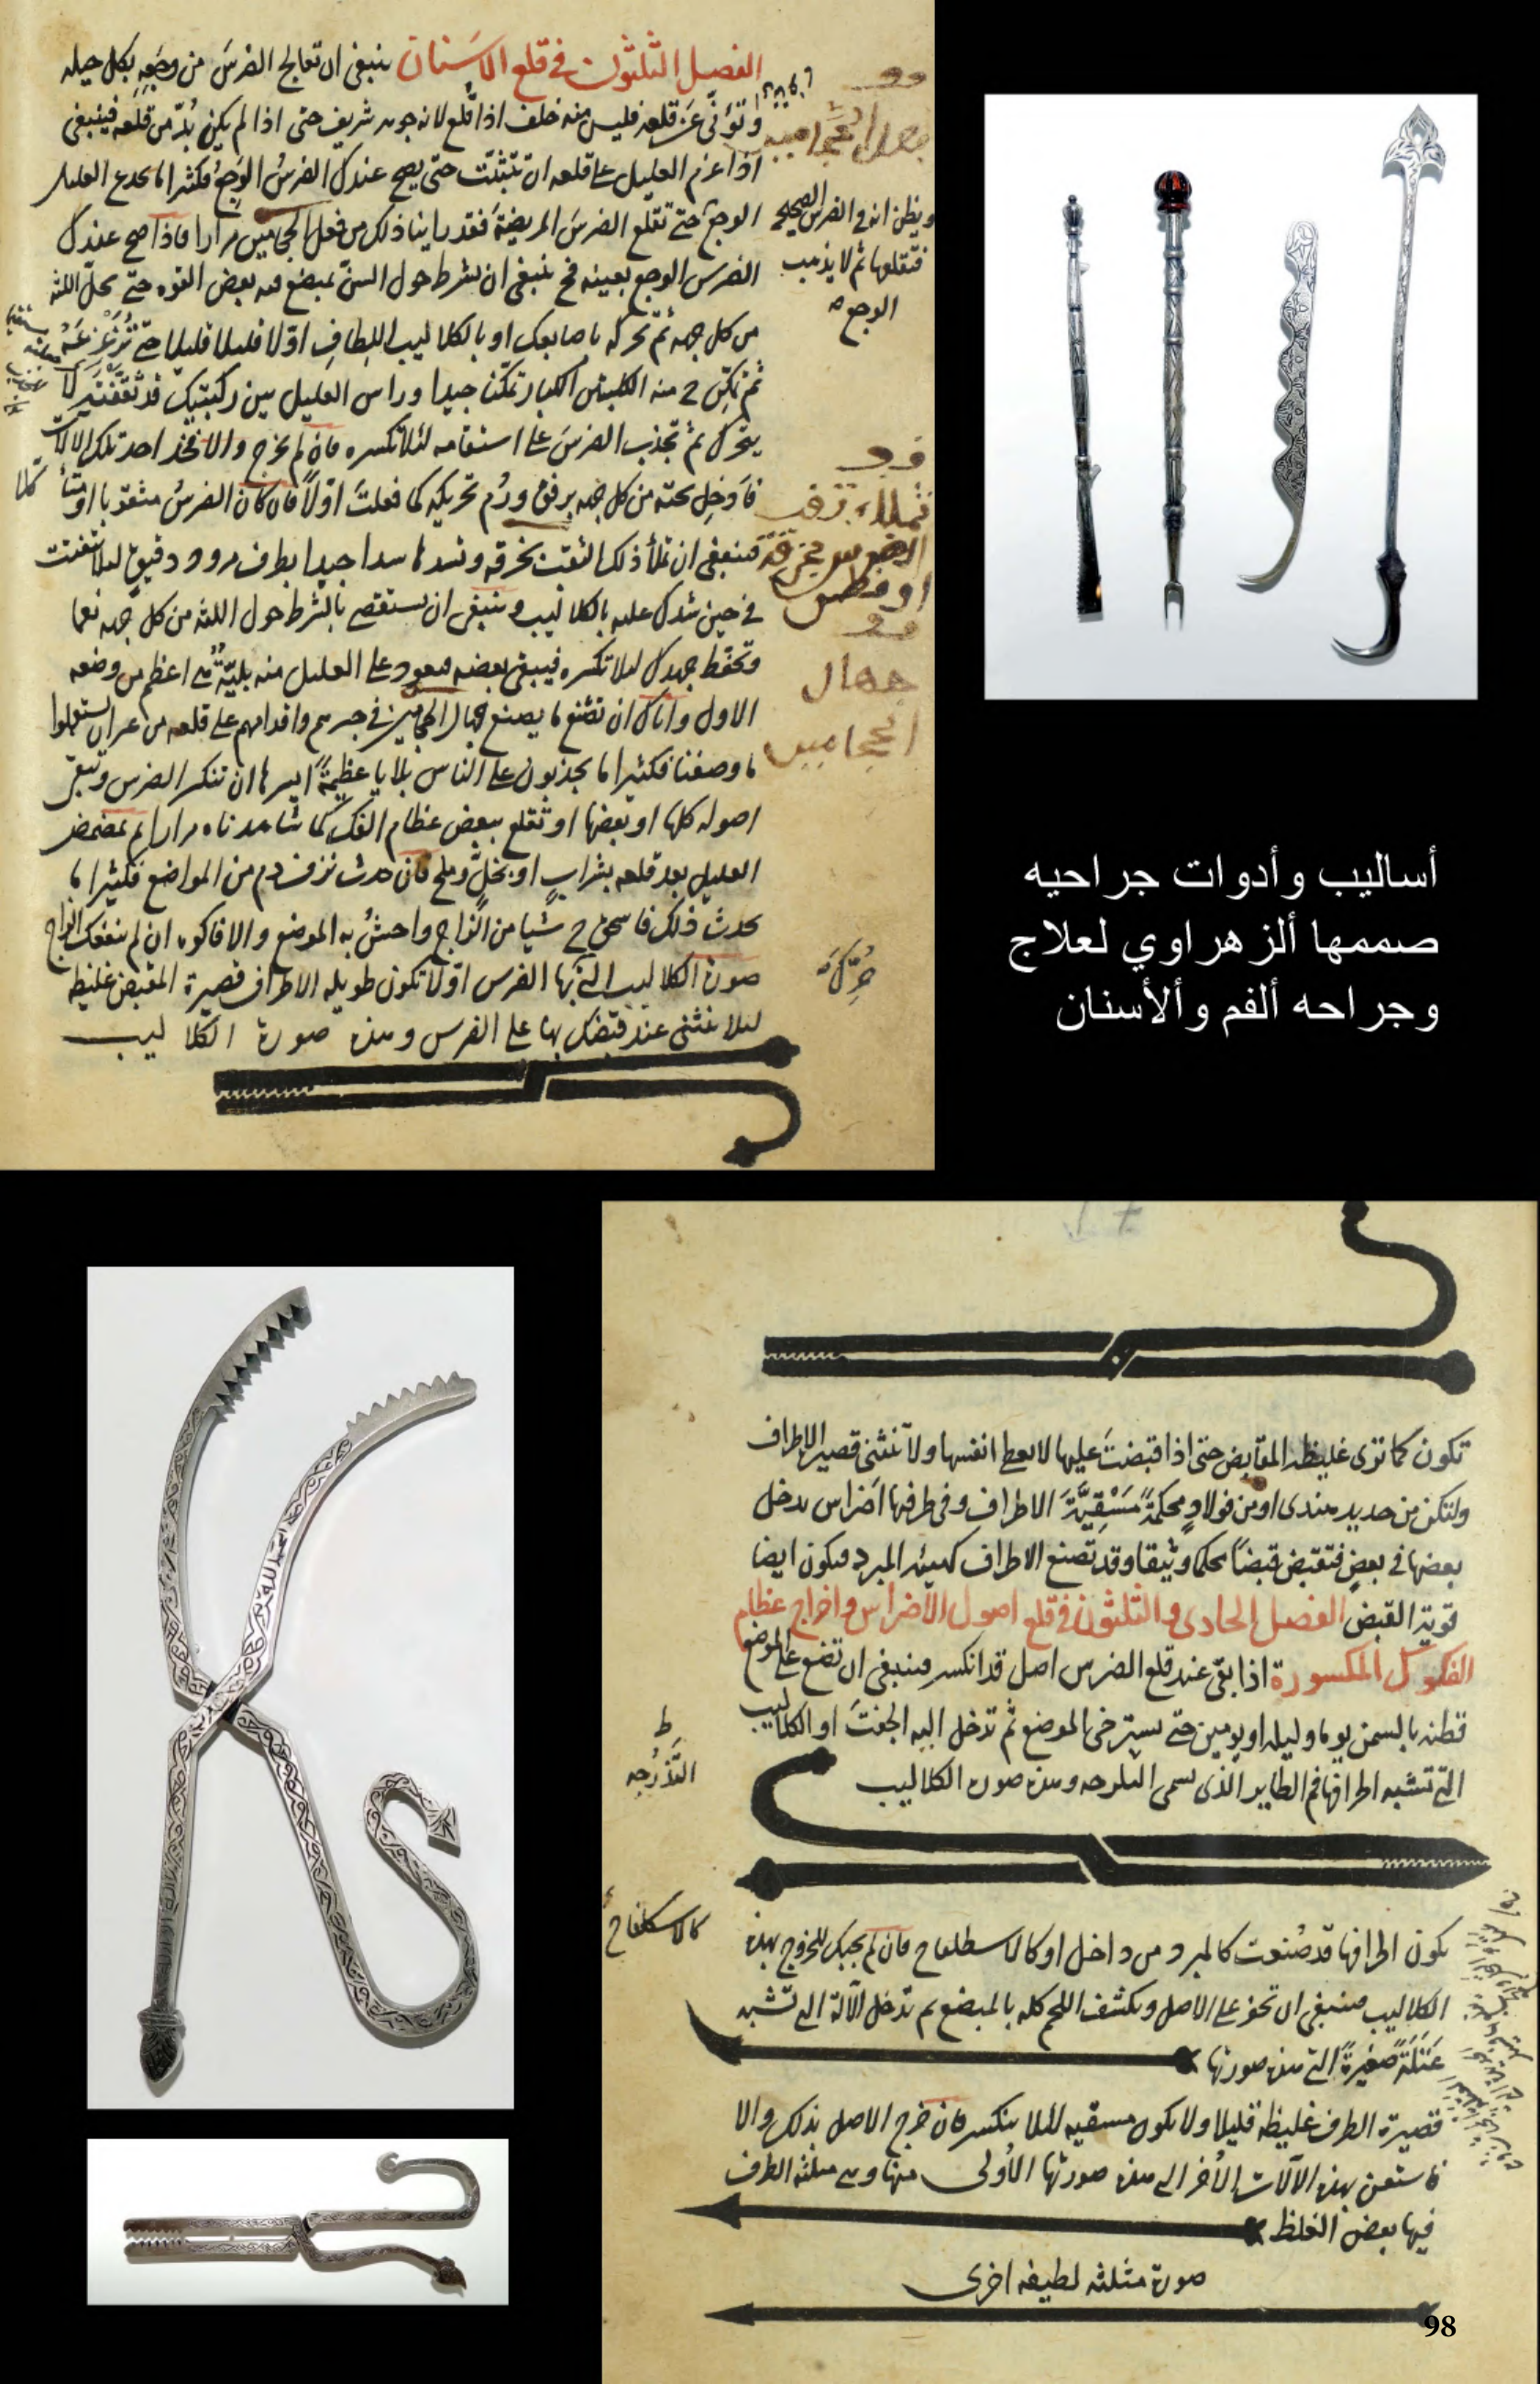 الفصل الثلثون في قلع الاسنان ينبغي ان تعالج الضرس من وجعه بكل حيله
وتوَنّى عن قلعه فليس منه خلف اذا قُلع لانه جوهر شريف حتى اذا لم يكن بُدّ من قلعه فينبغي
اذا عزم العليل على قلعه ان تتثبّت حتى يصح عندك الضرسُ الوَجِعُ فكثيرا ما يخدع العليل
ويظن انه في الضرس الصحيح
فتقلعها ثم لا يذهب
الوجع
الوجع حتى تقلع الضرسَ المريضة فقد راينا ذلك من فعل الحجامين مرارا فاذا صح عندك
الضرس الوجع بعينه فح ينبغي ان تشرط حول السنّ بمبضع فيه بعض القوه حتى تحلّ اللثه
من كل جهه ثم تحركه باصابعك او بالكلاليب اللطاف اوّلا قليلا قليلا حتى تزعزعه
ثم تمكّن ح منه الكلبتين الكبار تمكّنا جيدا وراس العليل بين ركبتيك قد ثقّفته لا
يتحرك ثم تجذب الضرسَ على استقامه لئلا تكسره فان لم يخرج والا فخذ احد تلك الالات
فادخل تحته من كل جهه برفق ورُم تحريكه كما فعلتَ اوّلًا فان كان الضرسُ مثقوبا او متأكلا
فينبغي ان تملأ ذلك الثقب بخرقه وتسدها سدا جيدا بطرف مرود دقيق ليلا يتفتت
في حين شدك عليه بالكلاليب وينبغي ان تستقصي بالشرط حول اللثه من كل جهه نعما
وتحفّظ جهدك ليلا تكسره فيبقى بعضه فيعود على العليل منه بليّةٌ هي اعظم من وجعه
الاول واياك ان تصنع ما يصنع جهال الحجامين في جسرهم واقدامهم على قلعه من غير ان يستعملوا
ما وصفنا فكثيرا ما يحدثون على الناس بلايا عظيمةً ايسرها ان تنكسر الضرس وتبقى
اصوله كلها او بعضها او تقلع ببعض عظام الفك كما شاهدناه مرارا ثم يتمضمض
العليل بعد قلعه بشرابٍ او بخلٍّ وملح فان حدث نزف دم من المواضع فكثيرا ما
يحدث ذلك فاسحق ح شيا من الزاج واحشُ به الموضع والا فاكوه ان لم ينفعك الزاج
صورة الكلاليب التي تحرك بها الضرس اوّلا تكون طويله الاطراف قصيرة المقبض غليظه
ليلا تنثني عند قبضك بها على الضرس وهذه صورة الكلاليب
جهال
الحجامين
أساليب وأدوات جراحيه
صممها ألزهراوي لعلاج
وجراحه ألفم وألأسنان
تكون كما ترى غليظه المقابض حتى اذا قبضتَ عليها لا تعطي انفسها ولا تنثني قصيره الاطراف
ولتكن من حديد هندى او من فولاذٍ محكمةً مَسْقِيَّةَ الاطراف وفي طرفها اضراس يدخل
بعضها في بعضٍ فتقبض قبضًا محكما وثيقا وقد تصنع الاطراف كهيئه المبرد فيكون ايضا
قوية القبض الفصل الحادي والثلثون في قلع اصول الاضراس واخراج عظام
الفكوك المكسورة اذا بقي عند قلع الضرس اصل قد انكسر فينبغي ان تضع على الموضع
قطنه بالسمن يوما وليله او يومين حتى يسترخي الموضع ثم تدخل اليه الجفتَ او الكلاليب
التي تشبه اطرافها فم الطاير الذي يسمى البلرجه وهذه صورة الكلاليب
تكون اطرافها قد صُنعت كالمبرد من داخل او كالاسطلفاج فان لم يجبك للخروج بهذه
الكلاليب فينبغي ان تحفر على الاصل وتكشف اللحم كله بالمبضع ثم تدخل الآلة التي تشبه
عَتَلَةً صغيرةً التي هذه صورتها
قصيرة الطرف غليظه قليلا ولا تكون مسقيه ليلا تنكسر فان خرج الاصل بذلك والا
فاستعن بهذه الآلات الاُخر التي هذه صورتها الاُولى منها وهي مثلثه الطرف
فيها بعض الغلظ
صورة مثلثه لطيفه اخرى
98